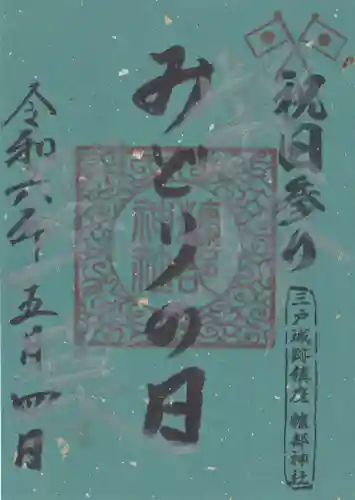 祝日参り
三戸城跡鎮座 糠部神社
みどりの日
令和六年五月四日